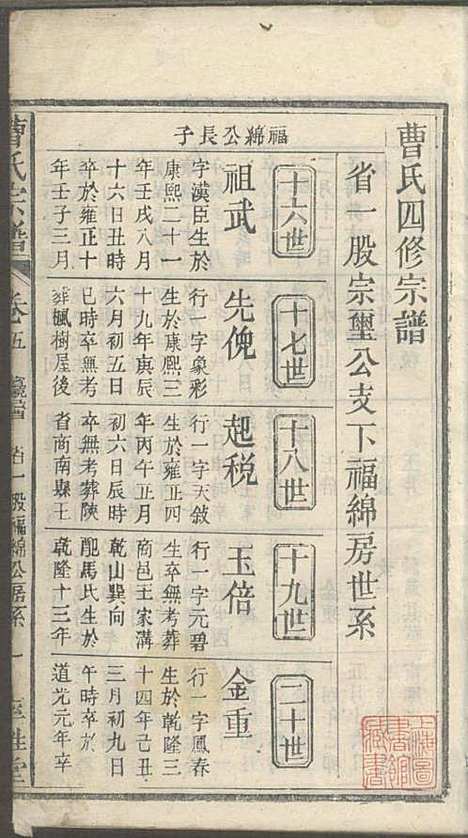 曹氏四修宗譜
省一股宗璽公支下福綿房世系
十六世
十七世
十八世
十九世
二十世
福綿公長子
祖武
字漢臣生於
康熙二十一
年壬戌八月
十六日丑時
卒於雍正十
年壬子三月
先俛
行一字象彩
生於康熙三
十九年庚辰
六月初五日
巳時卒無考
葬楓樹屋後
起税
行一字天敘
生於雍正四
年丙午正月
初六日辰時
卒無考葬陝
省商南縣王
玉倍
行一字元碧
生卒無考葬
商邑王家溝
乾山巽向
配馬氏生於
乾隆十三年
金重
行一字鳳春
生於乾隆三
十四年己丑
三月初九日
午時卒於
道光元年辛
曹氏宗譜
卷五
省一股福綿公房系
一
上海圖
書館
藏書